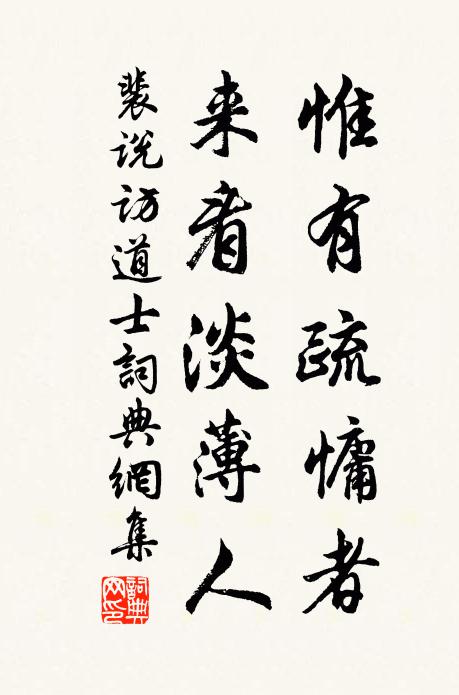 惟有疏慵者
来看淡薄人
裴说访道士詞典網集
詞典
网印